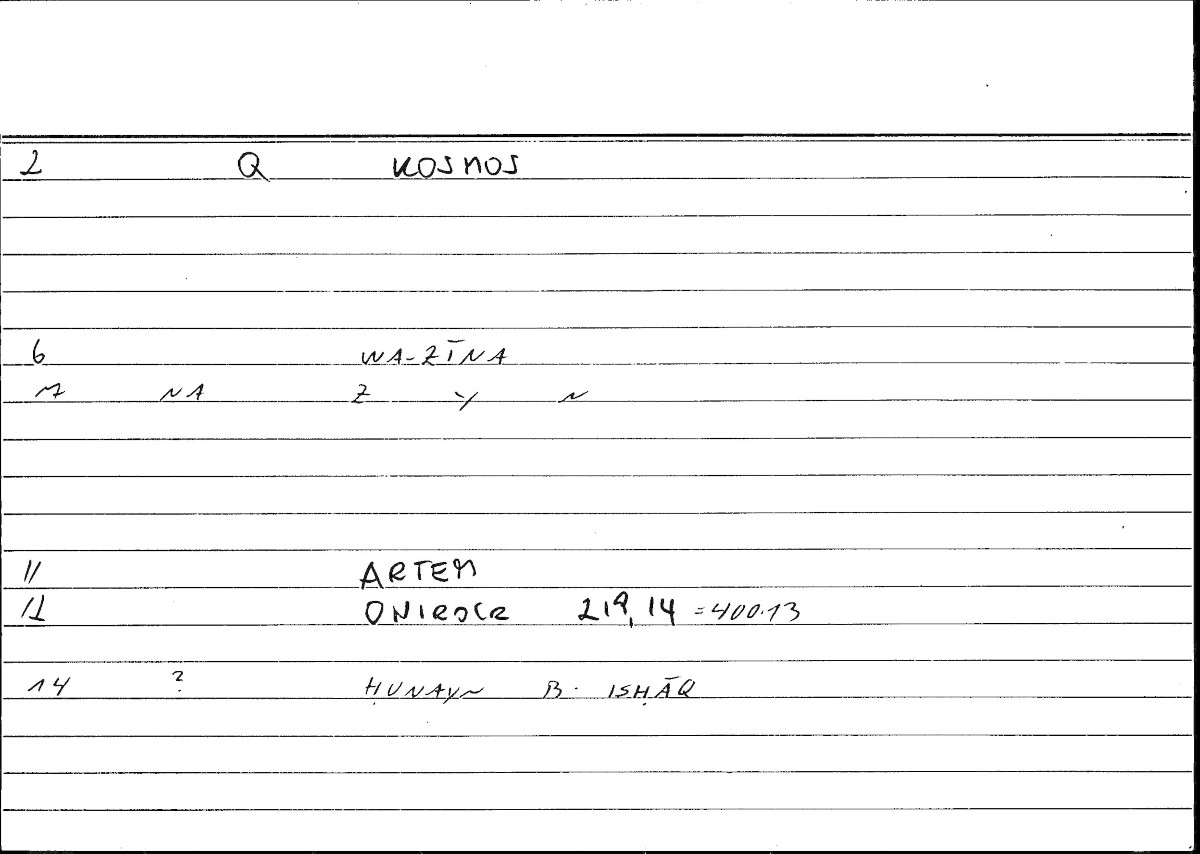 2 Q KOSMOS
6 WA-ZĪNA
7 NA Z Y N
11 ARTEM
12 ONIROCR 219,14 =400.13
14 ? ḤUNAYN B. ISḤĀQ